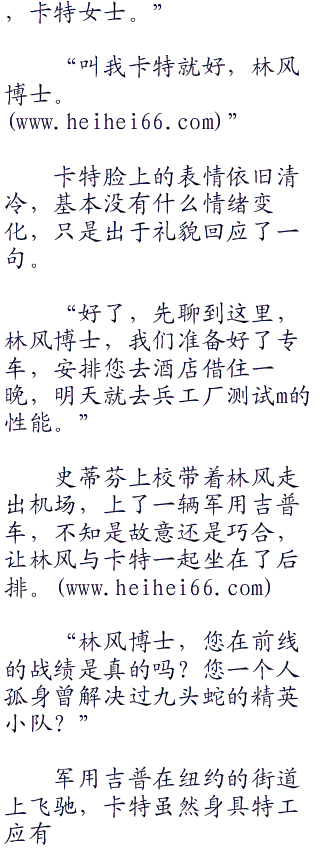 ，卡特女士。”
“叫我卡特就好，林风
博士。
(www.heihei66.com)”
卡特脸上的表情依旧清
冷，基本没有什么情绪变
化，只是出于礼貌回应了一
句。
“好了，先聊到这里，
林风博士，我们准备好了专
车，安排您去酒店借住一
晚，明天就去兵工厂测试m的
性能。”
史蒂芬上校带着林风走
出机场，上了一辆军用吉普
车，不知是故意还是巧合，
让林风与卡特一起坐在了后
排。(www.heihei66.com)
“林风博士，您在前线
的战绩是真的吗？您一个人
孤身曾解决过九头蛇的精英
小队？”
军用吉普在纽约的街道
上飞驰，卡特虽然身具特工
应有